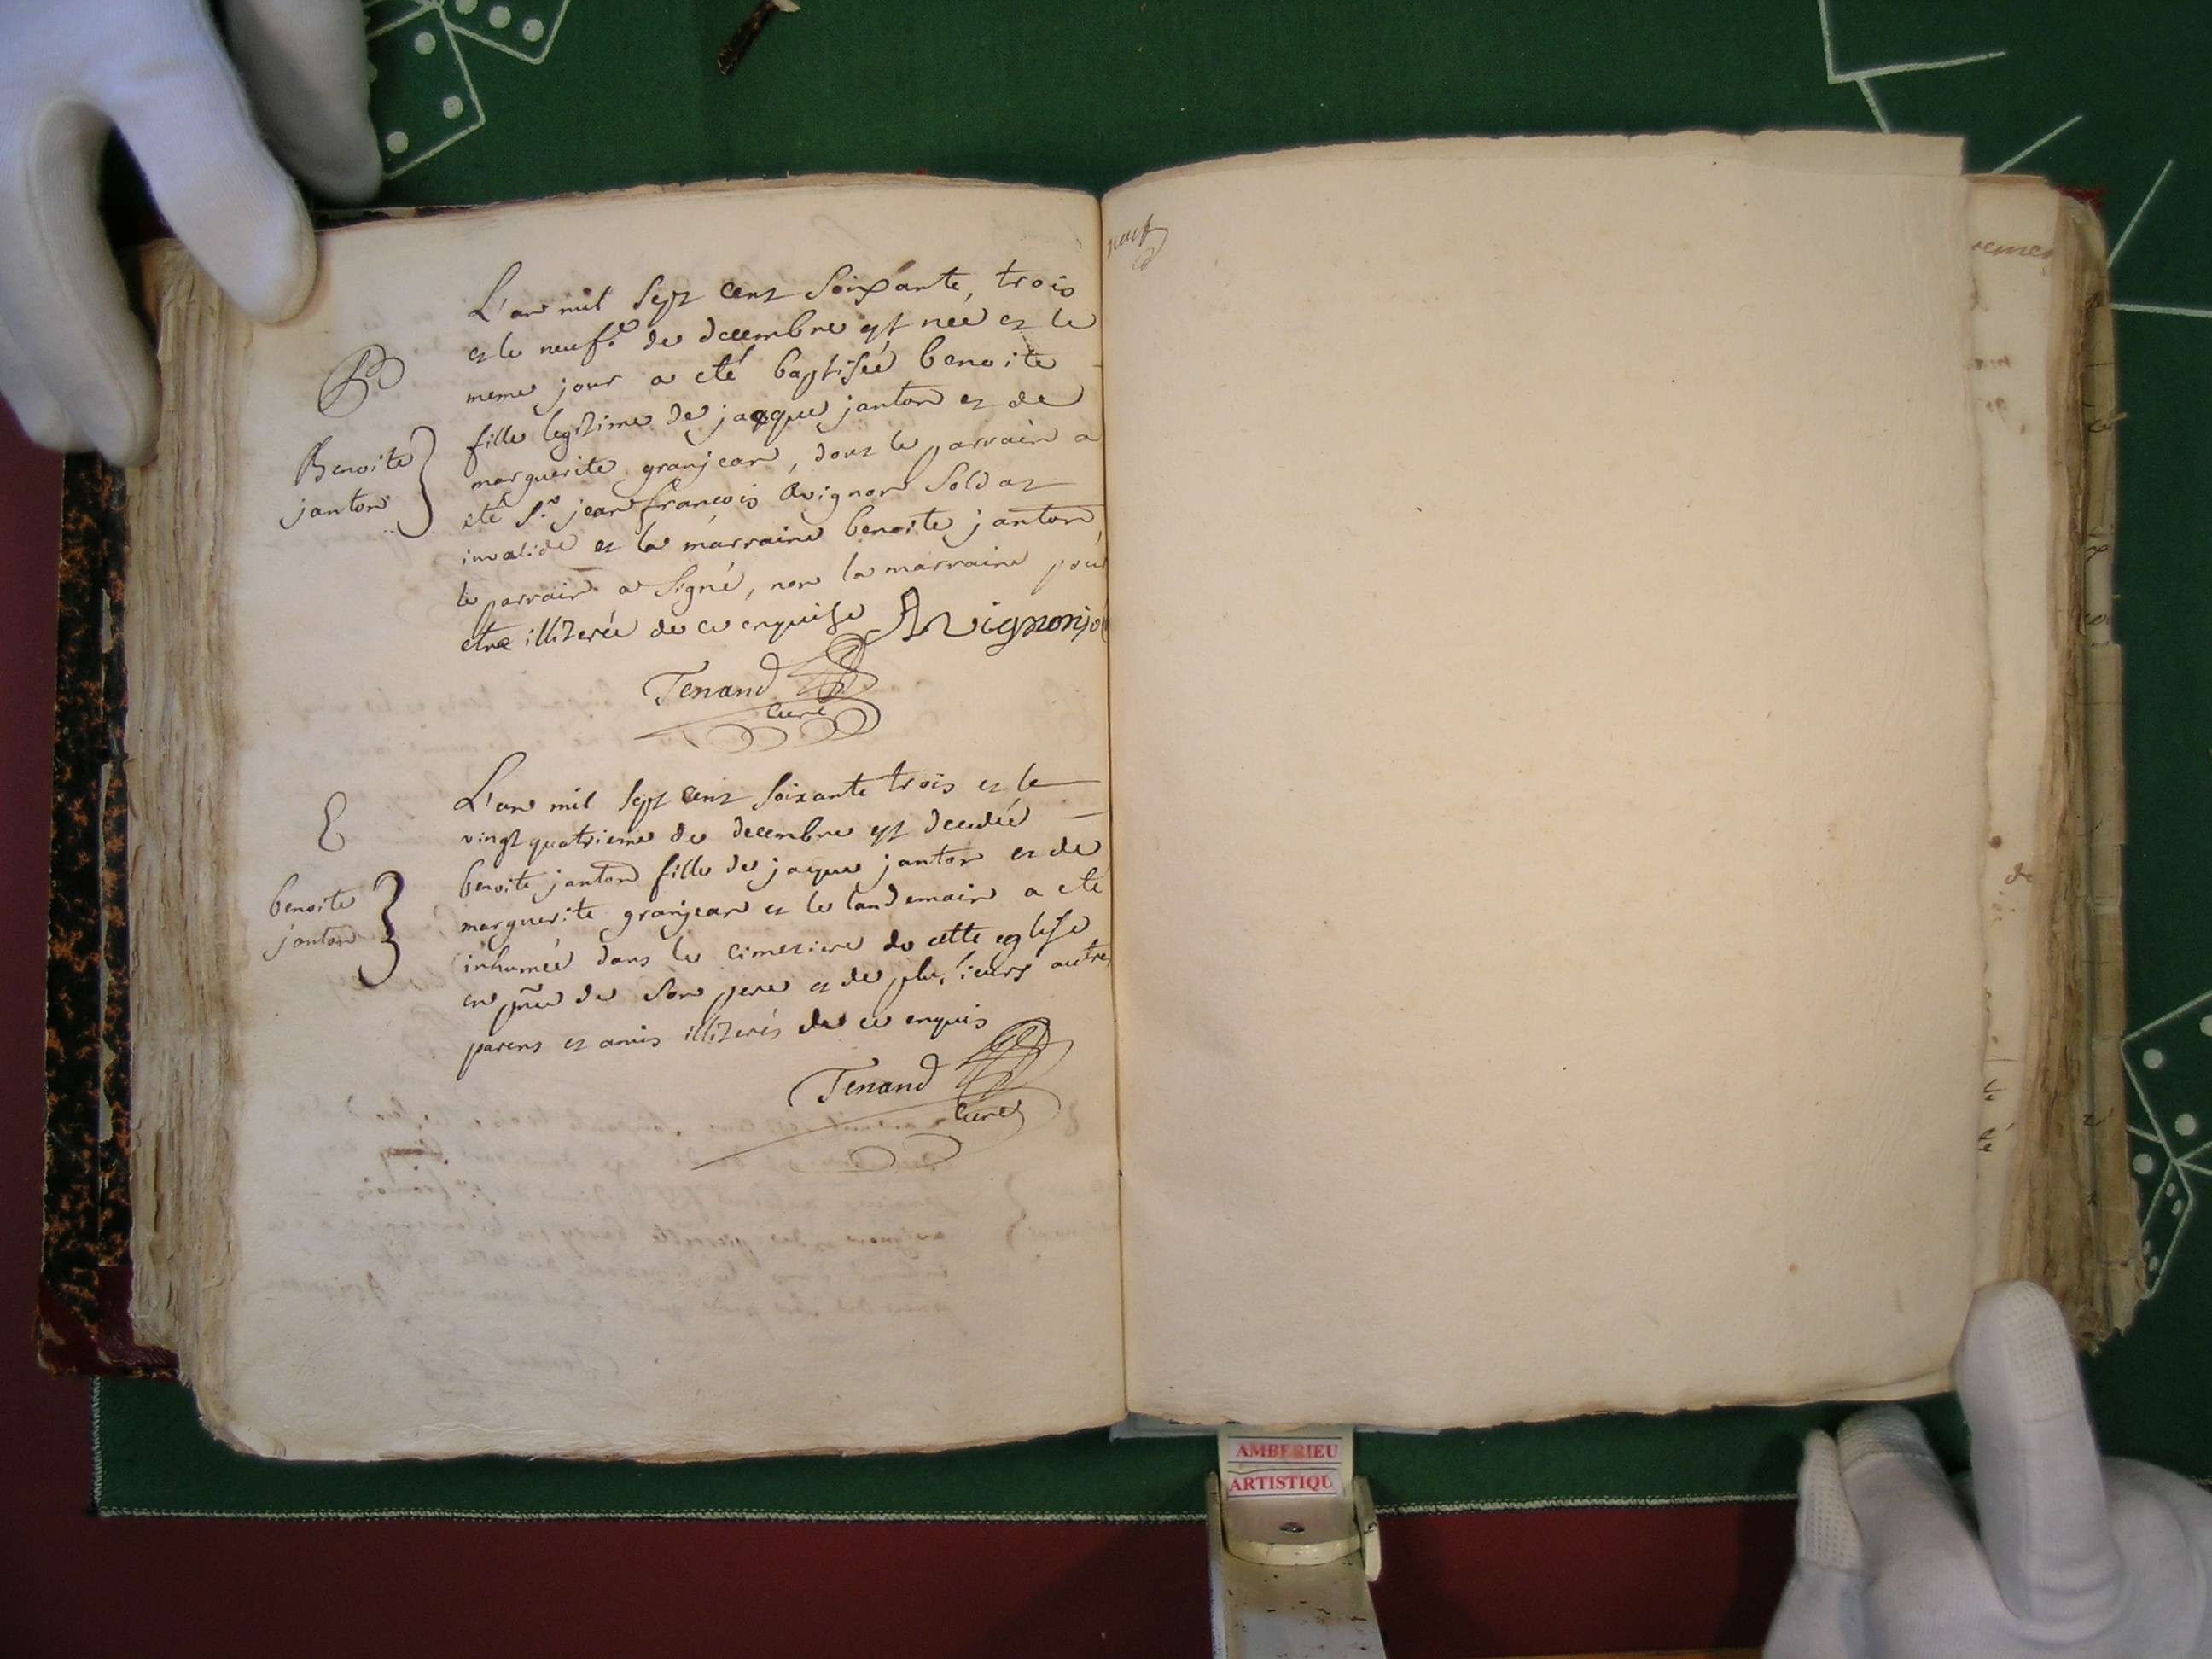 B
Benoite
janton
L'an mil sept cent soixante, trois
et le neufe de decembre est neé et le
meme jour a eté baptiseé benoite
fille legitime de jacque janton et de
marguerite granjean, dont le parrain a
eté Sr. jean françois avignon soldat
invalide et la marraine benoite janton
le parrain a signé, non la marraine pour
etre illitereé de ce enquise Avignon
Tenand
curé
E
benoite
janton
L'an mil sept cent soixante trois et le
vingt quatrieme de decembre est decedeé
benoite janton fille de jaque janton et de
marguerite granjean et le landemain a eté
inhumeé dans le cimetiere de cette eglise
en pñce de son pere et de plusieurs autres
parens et amis illiterés de ce enquis
Tenand
curé
neuf
de
AMBERIEU
ARTISTIQU